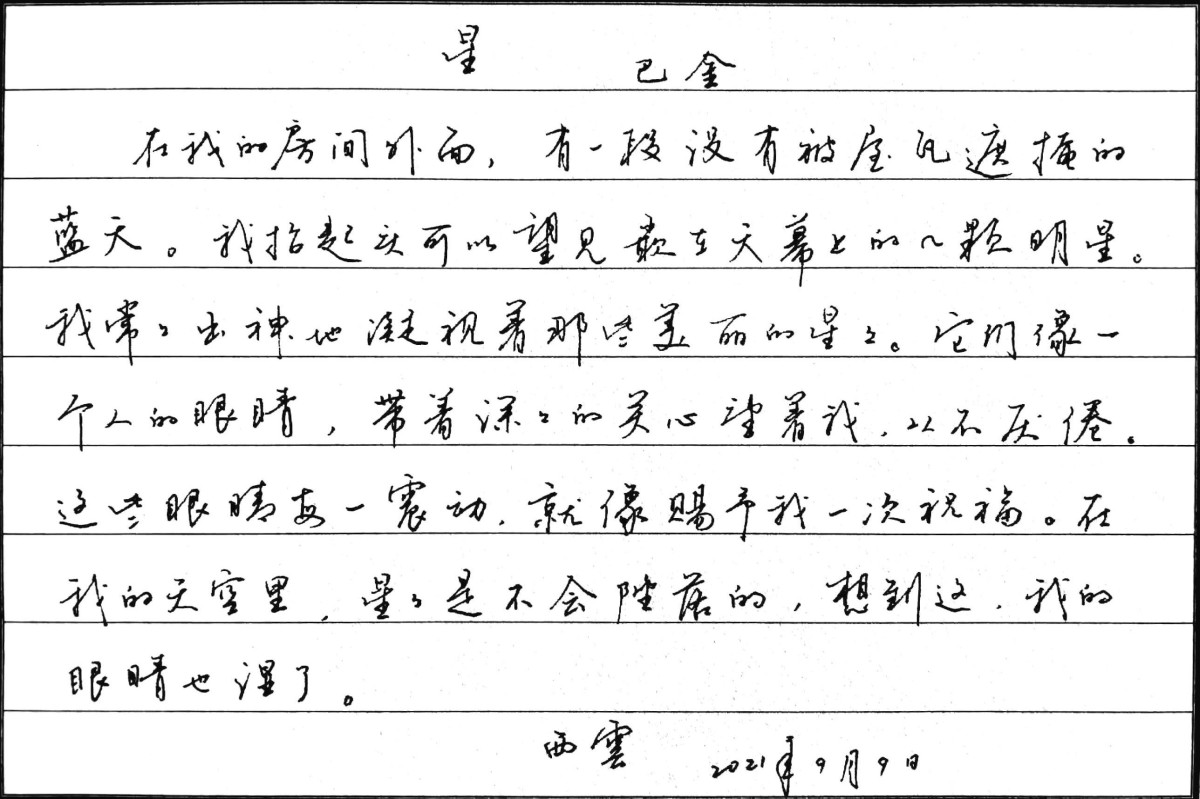 星 巴金
在我的房间外面，有一段没有被屋瓦遮掩的
蓝天。我抬起头可以望见嵌在天幕上的几颗明星。
我常々出神地凝视着那些美丽的星々。它们像一
个人的眼睛，带着深々的关心望着我，从不厌倦。
这些眼睛每一震动，就像赐予我一次祝福。在
我的天空里，星々是不会陨落的，想到这，我的
眼睛也湿了。
西雲 2021年9月9日